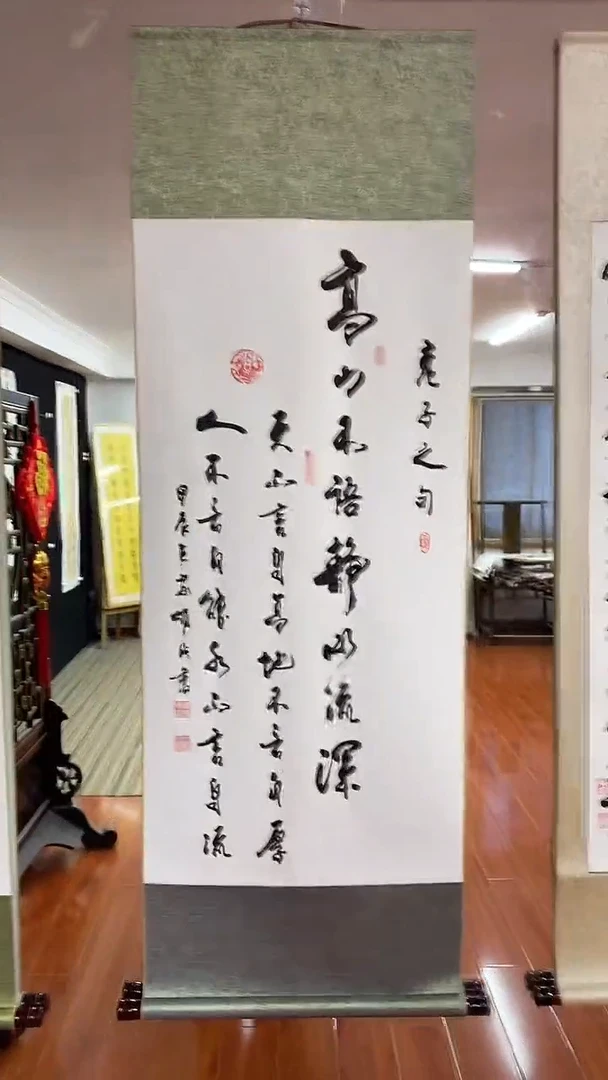 老子之句
高山不語静水流深
天不言自高地不言自厚
人不言自能水不言自流
甲辰書